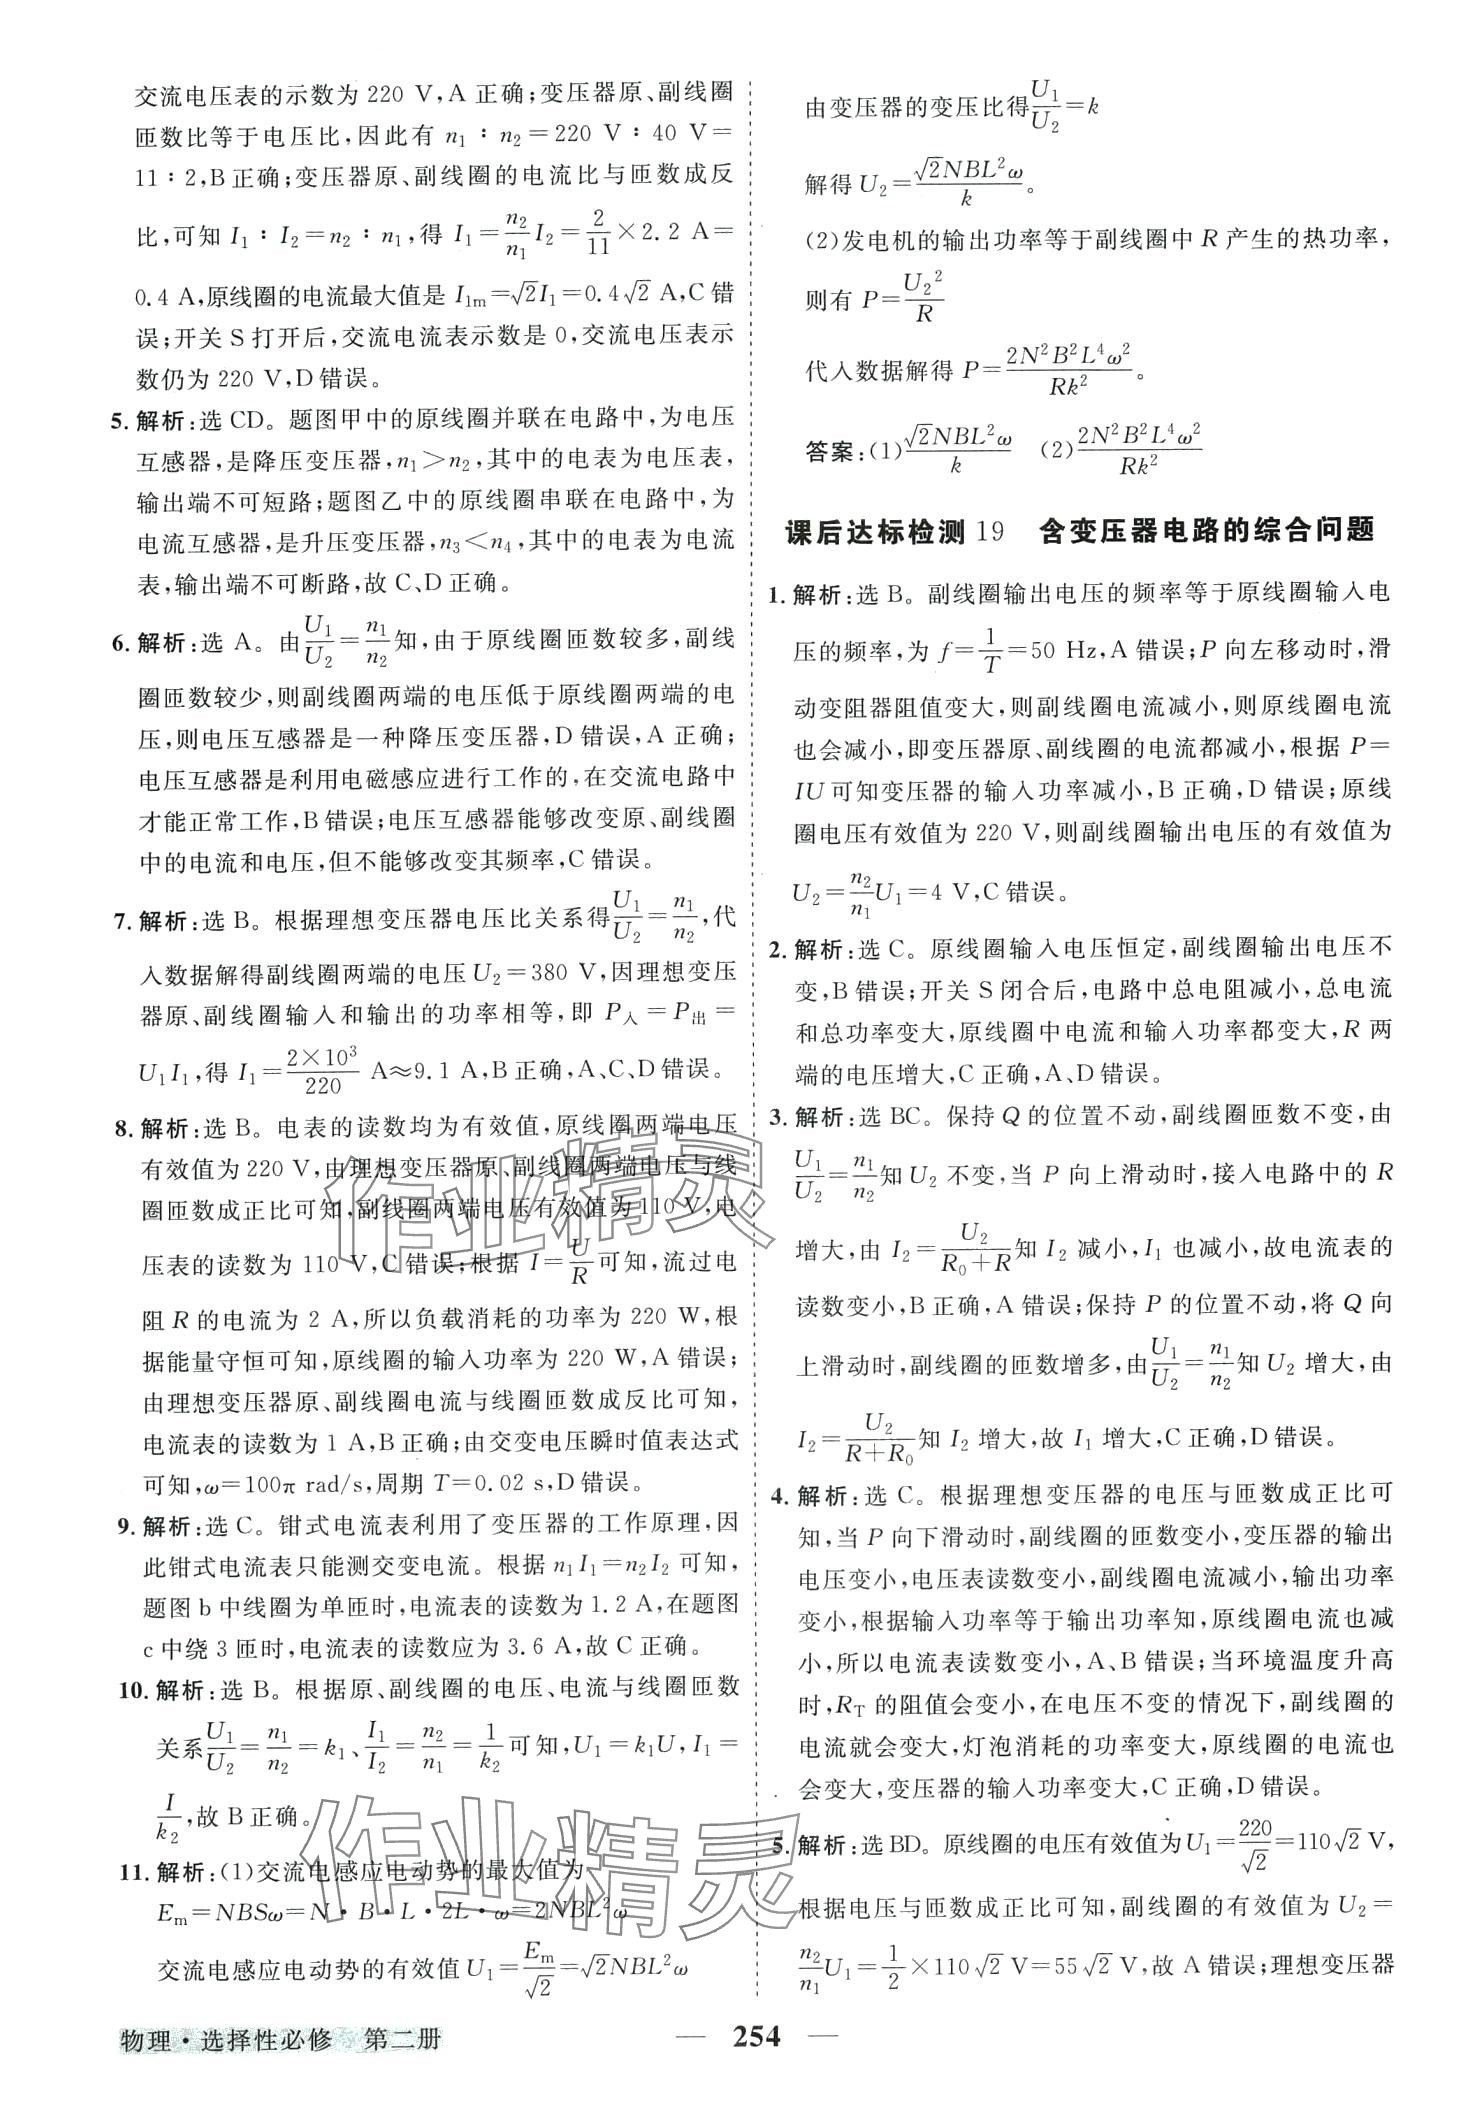 交流电压表的示数为 220 V,A 正确;变压器原、副线圈
匝数比等于电压比,因此有 n₁∶n₂=220 V∶40 V=
11∶2,B正确;变压器原、副线圈的电流比与匝数成反
比,可知 I₁∶I₂=n₂∶n₁,得 I₁=n₂/n₁ I₂=2/11×2.2 A=
0.4 A,原线圈的电流最大值是 I₁ₘ=√2I₁=0.4√2 A,C 错
误;开关 S 打开后,交流电流表示数是 0,交流电压表示
数仍为 220 V,D错误。
5. 解析:选 CD。题图甲中的原线圈并联在电路中,为电压
互感器,是降压变压器,n₁>n₂,其中的电表为电压表,
输出端不可短路;题图乙中的原线圈串联在电路中,为
电流互感器,是升压变压器,n₃<n₄,其中的电表为电流
表,输出端不可断路,故 C、D 正确。
6. 解析:选 A。由U₁/U₂=n₁/n₂知,由于原线圈匝数较多,副线
圈匝数较少,则副线圈两端的电压低于原线圈两端的电
压,则电压互感器是一种降压变压器,D 错误,A 正确;
电压互感器是利用电磁感应进行工作的,在交流电路中
才能正常工作,B错误;电压互感器能够改变原、副线圈
中的电流和电压,但不能够改变其频率,C 错误。
7. 解析:选 B。根据理想变压器电压比关系得U₁/U₂=n₁/n₂,代
入数据解得副线圈两端的电压 U₂=380 V,因理想变压
器原、副线圈输入和输出的功率相等,即 P入=P出=
U₁I₁,得 I₁=2×10³/220 A≈9.1 A,B 正确,A、C、D 错误。
8. 解析:选 B。电表的读数均为有效值,原线圈两端电压
有效值为 220 V,由理想变压器原、副线圈两端电压与线
圈匝数成正比可知,副线圈两端电压有效值为 110 V,电
压表的读数为 110 V,C 错误;根据 I=U/R可知,流过电
阻 R 的电流为 2 A,所以负载消耗的功率为 220 W,根
据能量守恒可知,原线圈的输入功率为 220 W,A 错误;
由理想变压器原、副线圈电流与线圈匝数成反比可知,
电流表的读数为 1 A,B 正确;由交变电压瞬时值表达式
可知,ω=100π rad/s,周期 T=0.02 s,D 错误。
9. 解析:选 C。钳式电流表利用了变压器的工作原理,因
此钳式电流表只能测交变电流。根据 n₁I₁=n₂I₂ 可知,
题图 b 中线圈为单匝时,电流表的读数为 1.2 A,在题图
c 中绕 3 匝时,电流表的读数应为 3.6 A,故 C 正确。
10. 解析:选 B。根据原、副线圈的电压、电流与线圈匝数
关系U₁/U₂=n₁/n₂=k₁、I₁/I₂=n₂/n₁=1/k₂可知,U₁=k₁U,I₁=
I/k₂,故 B 正确。
11. 解析:(1)交流电感应电动势的最大值为
Eₘ=NBSω=N·B·L·2L·ω=2NBL²ω
交流电感应电动势的有效值 U₁=Eₘ/√2=√2NBL²ω
由变压器的变压比得U₁/U₂=k
解得 U₂=√2NBL²ω/k。
(2)发电机的输出功率等于副线圈中 R 产生的热功率,
则有 P=U₂²/R
代入数据解得 P=2N²B²L⁴ω²/Rk²。
答案:(1)√2NBL²ω/k (2)2N²B²L⁴ω²/Rk²
课后达标检测 19 含变压器电路的综合问题
1. 解析:选 B。副线圈输出电压的频率等于原线圈输入电
压的频率,为 f=1/T=50 Hz,A 错误;P 向左移动时,滑
动变阻器阻值变大,则副线圈电流减小,则原线圈电流
也会减小,即变压器原、副线圈的电流都减小,根据 P=
IU 可知变压器的输入功率减小,B 正确,D 错误;原线
圈电压有效值为 220 V,则副线圈输出电压的有效值为
U₂=n₂/n₁ U₁=4 V,C 错误。
2. 解析:选 C。原线圈输入电压恒定,副线圈输出电压不
变,B 错误;开关 S 闭合后,电路中总电阻减小,总电流
和总功率变大,原线圈中电流和输入功率都变大,R 两
端的电压增大,C 正确,A、D 错误。
3. 解析:选 BC。保持 Q 的位置不动,副线圈匝数不变,由
U₁/U₂=n₁/n₂知 U₂ 不变,当 P 向上滑动时,接入电路中的 R
增大,由 I₂=U₂/(R₀+R)知 I₂ 减小,I₁ 也减小,故电流表的
读数变小,B 正确,A 错误;保持 P 的位置不动,将 Q 向
上滑动时,副线圈的匝数增多,由U₁/U₂=n₁/n₂知 U₂ 增大,由
I₂=U₂/(R+R₀)知 I₂ 增大,故 I₁ 增大,C 正确,D 错误。
4. 解析:选 C。根据理想变压器的电压与匝数成正比可
知,当 P 向下滑动时,副线圈的匝数变小,变压器的输出
电压变小,电压表读数变小,副线圈电流减小,输出功率
变小,根据输入功率等于输出功率知,原线圈电流也减
小,所以电流表读数变小,A、B 错误;当环境温度升高
时,R_T 的阻值会变小,在电压不变的情况下,副线圈的
电流就会变大,灯泡消耗的功率变大,原线圈的电流也
会变大,变压器的输入功率变大,C 正确,D 错误。
5. 解析:选 BD。原线圈的电压有效值为 U₁=220/√2=110√2 V,
根据电压与匝数成正比可知,副线圈的有效值为 U₂=
n₂/n₁ U₁=1/2×110√2 V=55√2 V,故 A 错误;理想变压器
物理·选择性必修 第二册
— 254 —
作业精灵
作业精灵